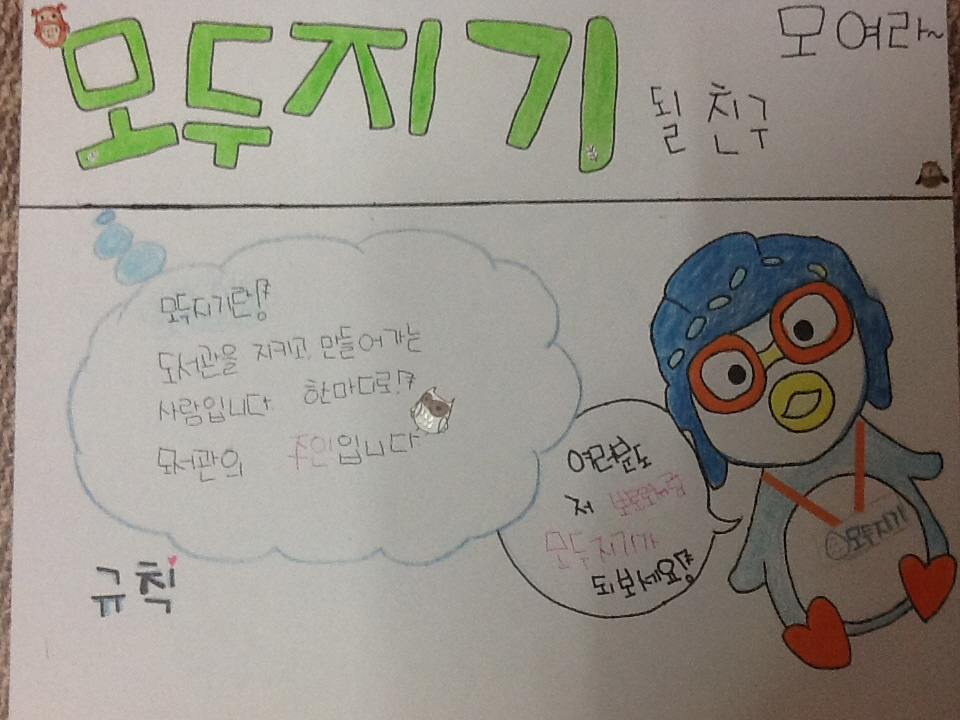 모두지기
될 친구
모여라~
모두지기란?
도서관을 지키고, 만들어가는
사람입니다 한마디로!?
도서관의 주인입니다
여러분도
저 뽀로로처럼
모두지기가
되보세요!
모두지기
규칙